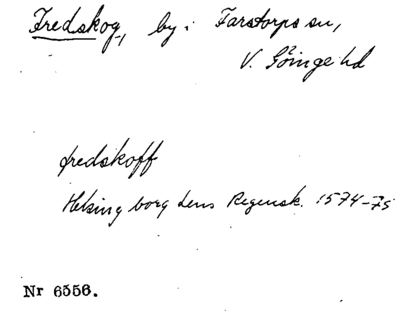 Fredskog, by i Farstorps sn,
V. Göinge hd
fredskoff
Helsingborg Lens Regensk. 1574-75
Nr 6556.